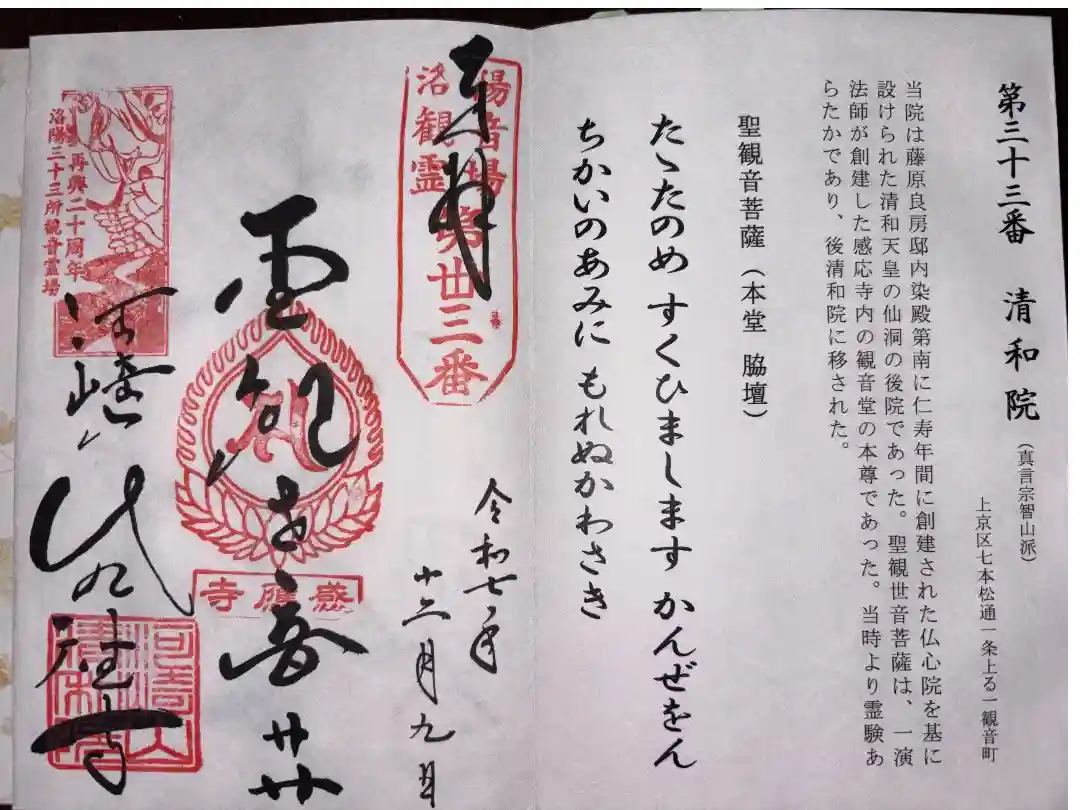 第三十三番 清和院 (真言宗智山派)
上京区七本松通一条上る一観音町
当院は藤原良房邸内染殿第南に仁寿年間に創建された仏心院を基に
設けられた清和天皇の仙洞の後院であった。聖観世音菩薩は、一演
法師が創建した感応寺内の観音堂の本尊であった。当時より霊験あ
らたかであり、後清和院に移された。
聖観音菩薩(本堂 脇壇)
たゝたのめ すくひましします かんぜをん
ちかいのあみに もれぬかわさき
奉拝
洛陽
観音
霊場
第丗三番
令和七年
十二月九日
感應寺
河崎
清和院
再興二十周年
洛陽三十三所観音霊場